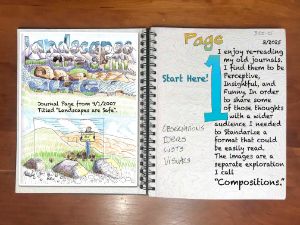 Landscapes
are
Safe
Journal Page from 9/1/2007
Titled "Landscapes are Safe".
Page
1
Start Here!
2/2025
I enjoy re-reading
my old journals.
I find them to be
Perceptive,
Insightful, and
Funny. In order
to share some
of those thoughts
with a wider
audience I needed
to Standarize a
format that could
be easily read.
The images are a
separate exploration
I call
"Compositions."
OBSERVATIONS
IDEAS
LISTS
VISUALS